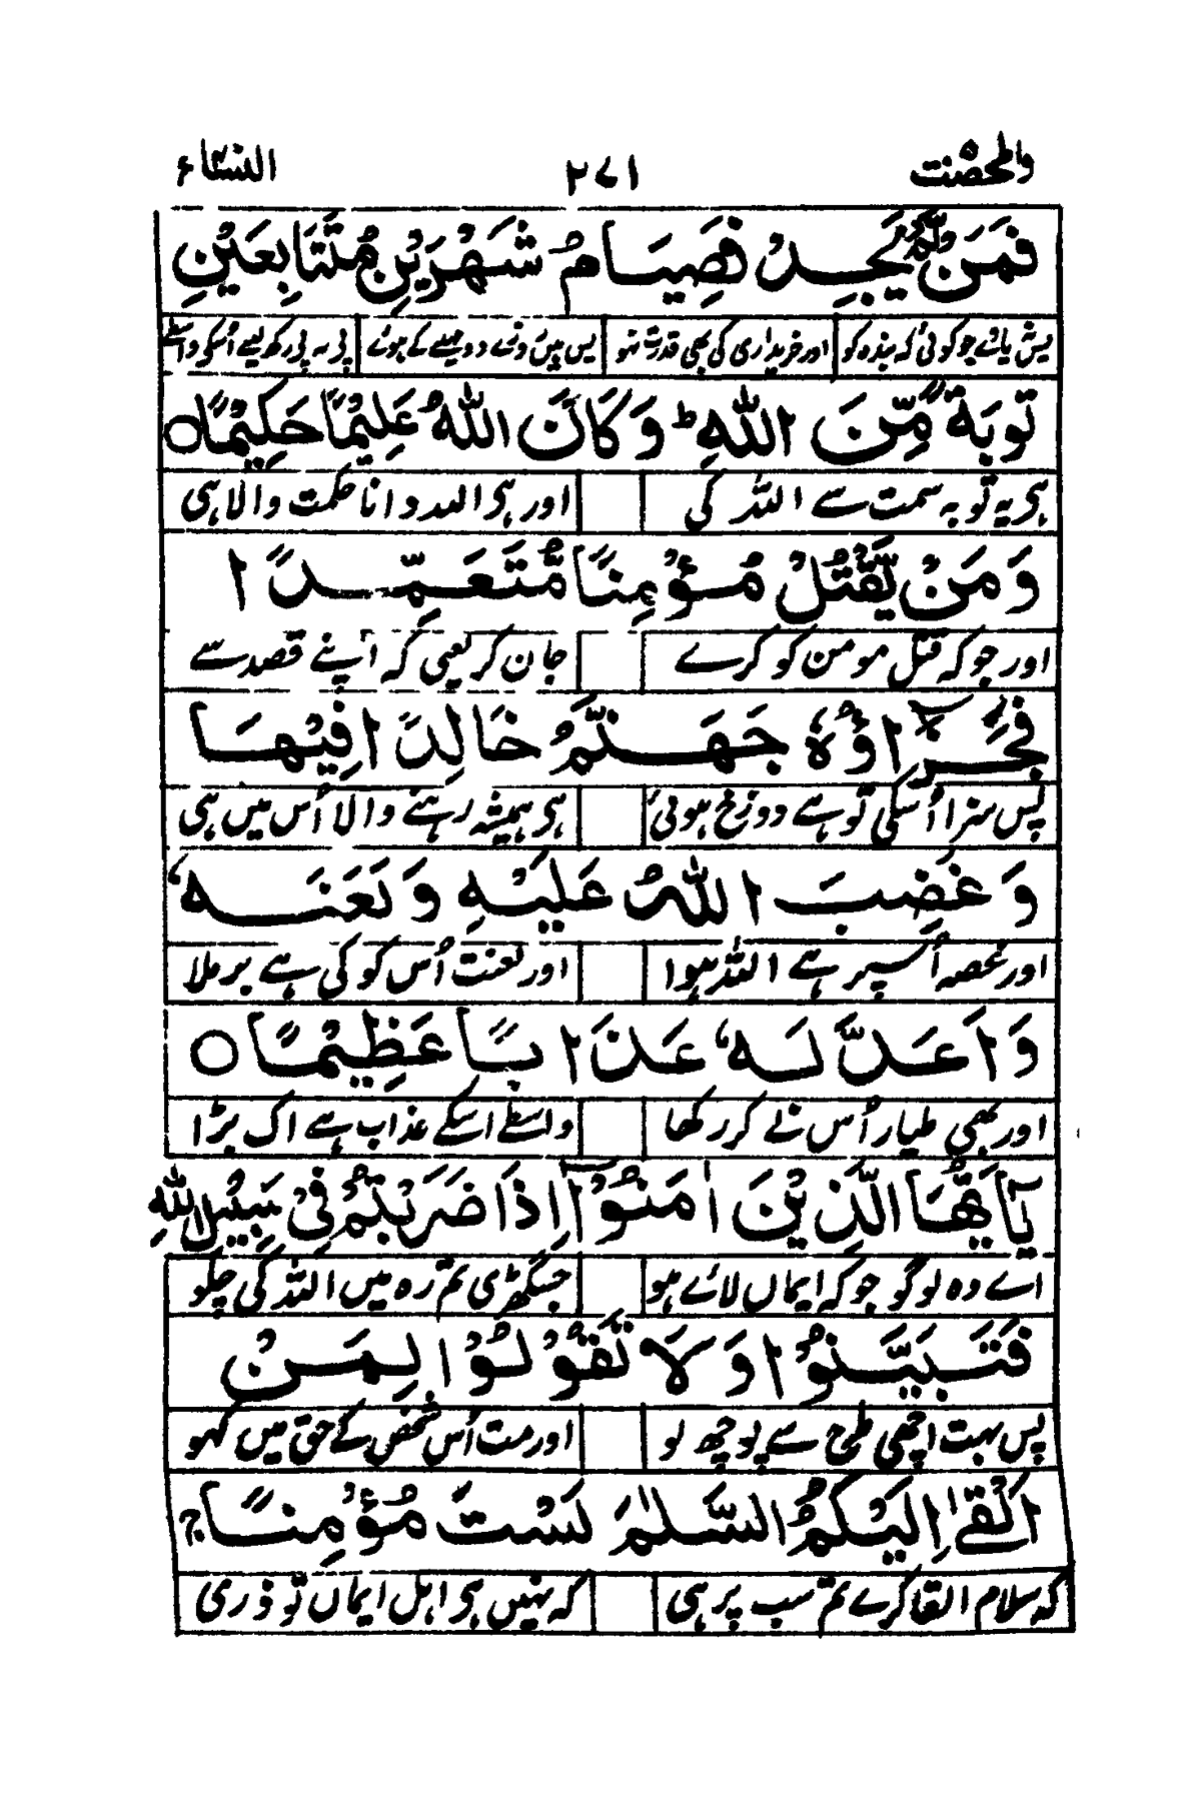 والمحصنت ٢٧١ النساء
فَمَنْ لَّمْ يَجِدْ فَصِيَامُ شَهْرَيْنِ مُتَتَابِعَيْنِ
پس پائے جو کوئی کہ بندہ کو اور خریداری کی بھی قدرت نہو پس ہیں روزے دو مہینے کے ہوئے پی بہ پی رکھ لیے اُسکو واسطے
تَوْبَةً مِّنَ اللّٰهِ ؕ وَكَانَ اللّٰهُ عَلِيْمًا حَكِيْمًا ○
ہی یہ توبہ سمت سے اللہ کی اور ہی اللہ دانا حکمت والا ہی
وَمَنْ يَّقْتُلْ مُؤْمِنًا مُّتَعَمِّدًا
اور جو کہ قتل مومن کو کرے جان کر یعنی کہ اپنے قصد سے
فَجَزَآؤُهٗ جَهَنَّمُ خَالِدًا فِيْهَا
پس سزا اُسکی تو ہے دوزخ ہوئی ہی ہمیشہ رہنے والا اُس میں ہی
وَغَضِبَ اللّٰهُ عَلَيْهِ وَلَعَنَهٗ
اور غصہ اُسپر ہے اللہ ہوا اور لعنت اُس کو کی ہے برملا
وَاَعَدَّ لَهٗ عَذَابًا عَظِيْمًا ○
اور بھی طیار اُس نے کر رکھا واسطے اسکے عذاب ہے اک بڑا
يٰۤاَيُّهَا الَّذِيْنَ اٰمَنُوْۤا اِذَا ضَرَبْتُمْ فِيْ سَبِيْلِ اللّٰهِ
اے وہ لوگو جو کہ ایماں لائے ہو جس گھڑی تم رہ میں اللہ کی چلو
فَتَبَيَّنُوْا وَلَا تَقُوْلُوْا لِمَنْ
پس بہت اچھی طرح سے پوچھ لو اور مت اُس شخص کے حق میں کہو
اَلْقٰۤى اِلَيْكُمُ السَّلٰمَ لَسْتَ مُؤْمِنًا ۚ
کہ سلام القا کرے تم سب پر ہی کہ نہیں ہی اہل ایماں تو ذری